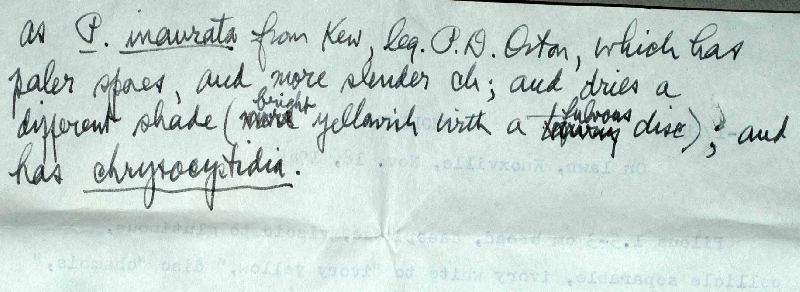 as P. inaurata from Kew, leg. P.D. Orton, which has
paler spores, and more slender ch; and dries a
different shade (bright yellowish with a fulvous disc); and
has chrysocystidia.
On lawn, Knoxville, Nov. 16, 19
Pileus 1.5-3 cm broad, viscid to glutinous,
pellicle separable, ivory white to "ivory yellow," disc "chamois,"